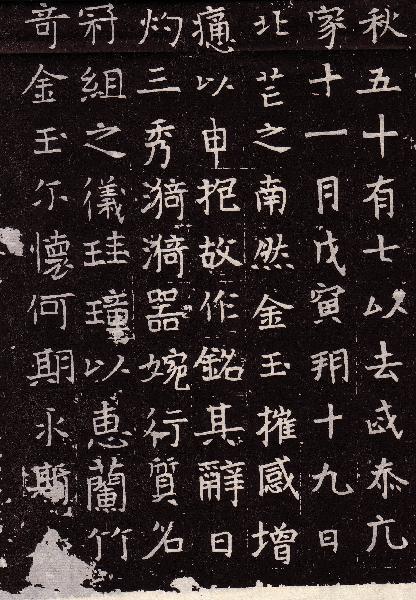 秋五十有七以去歲亢
家十一月戊寅朔十九日
北芒之南然金玉摧感增
痛以申抱故作銘其辭曰
灼三秀猗猗器婉行質名
冠組之儀珪璋以惠蘭竹
奇金玉尒懷何期永斯